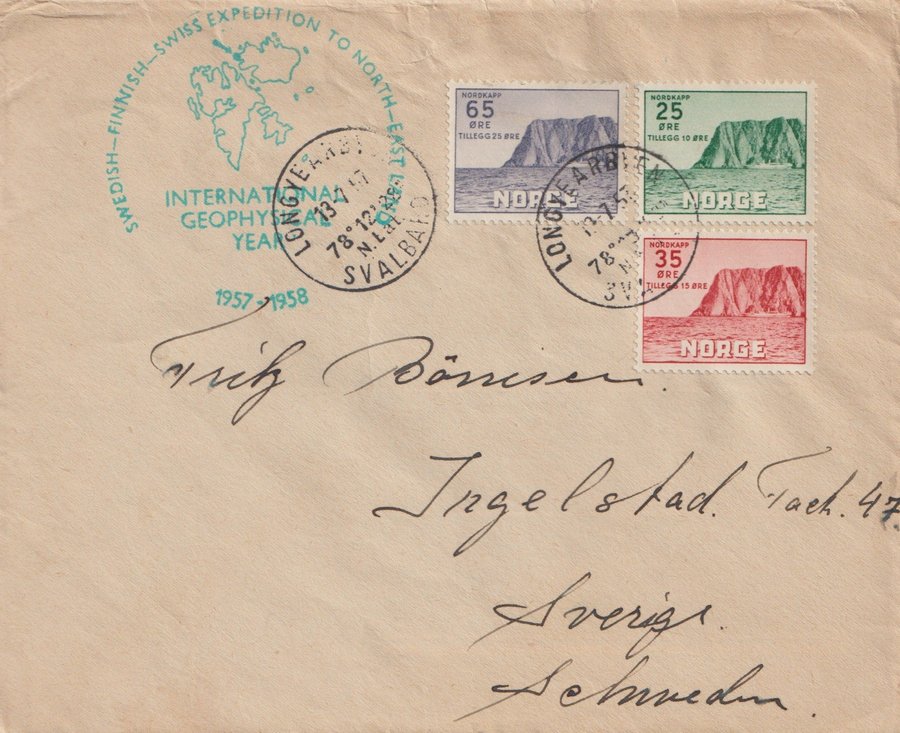 SWEDISH—FINNISH—SWISS EXPEDITION TO NORTH—EAST LAND
INTERNATIONAL
GEOPHYSICAL
YEAR
1957-1958
LONGYEARBYEN
13-7 57
78° 12'
N.
SVALBARD
NORDKAPP
65
ØRE
TILLEGG 25 ØRE
NORGE
NORDKAPP
25
ØRE
TILLEGG 10 ØRE
NORGE
LONGYEARBYEN
13-7.57
78°
N.
SV
NORDKAPP
35
ØRE
TILLEGG 15 ØRE
NORGE
Fritz
Ingelstad. Fach. 47
Sverige.
Schweden.